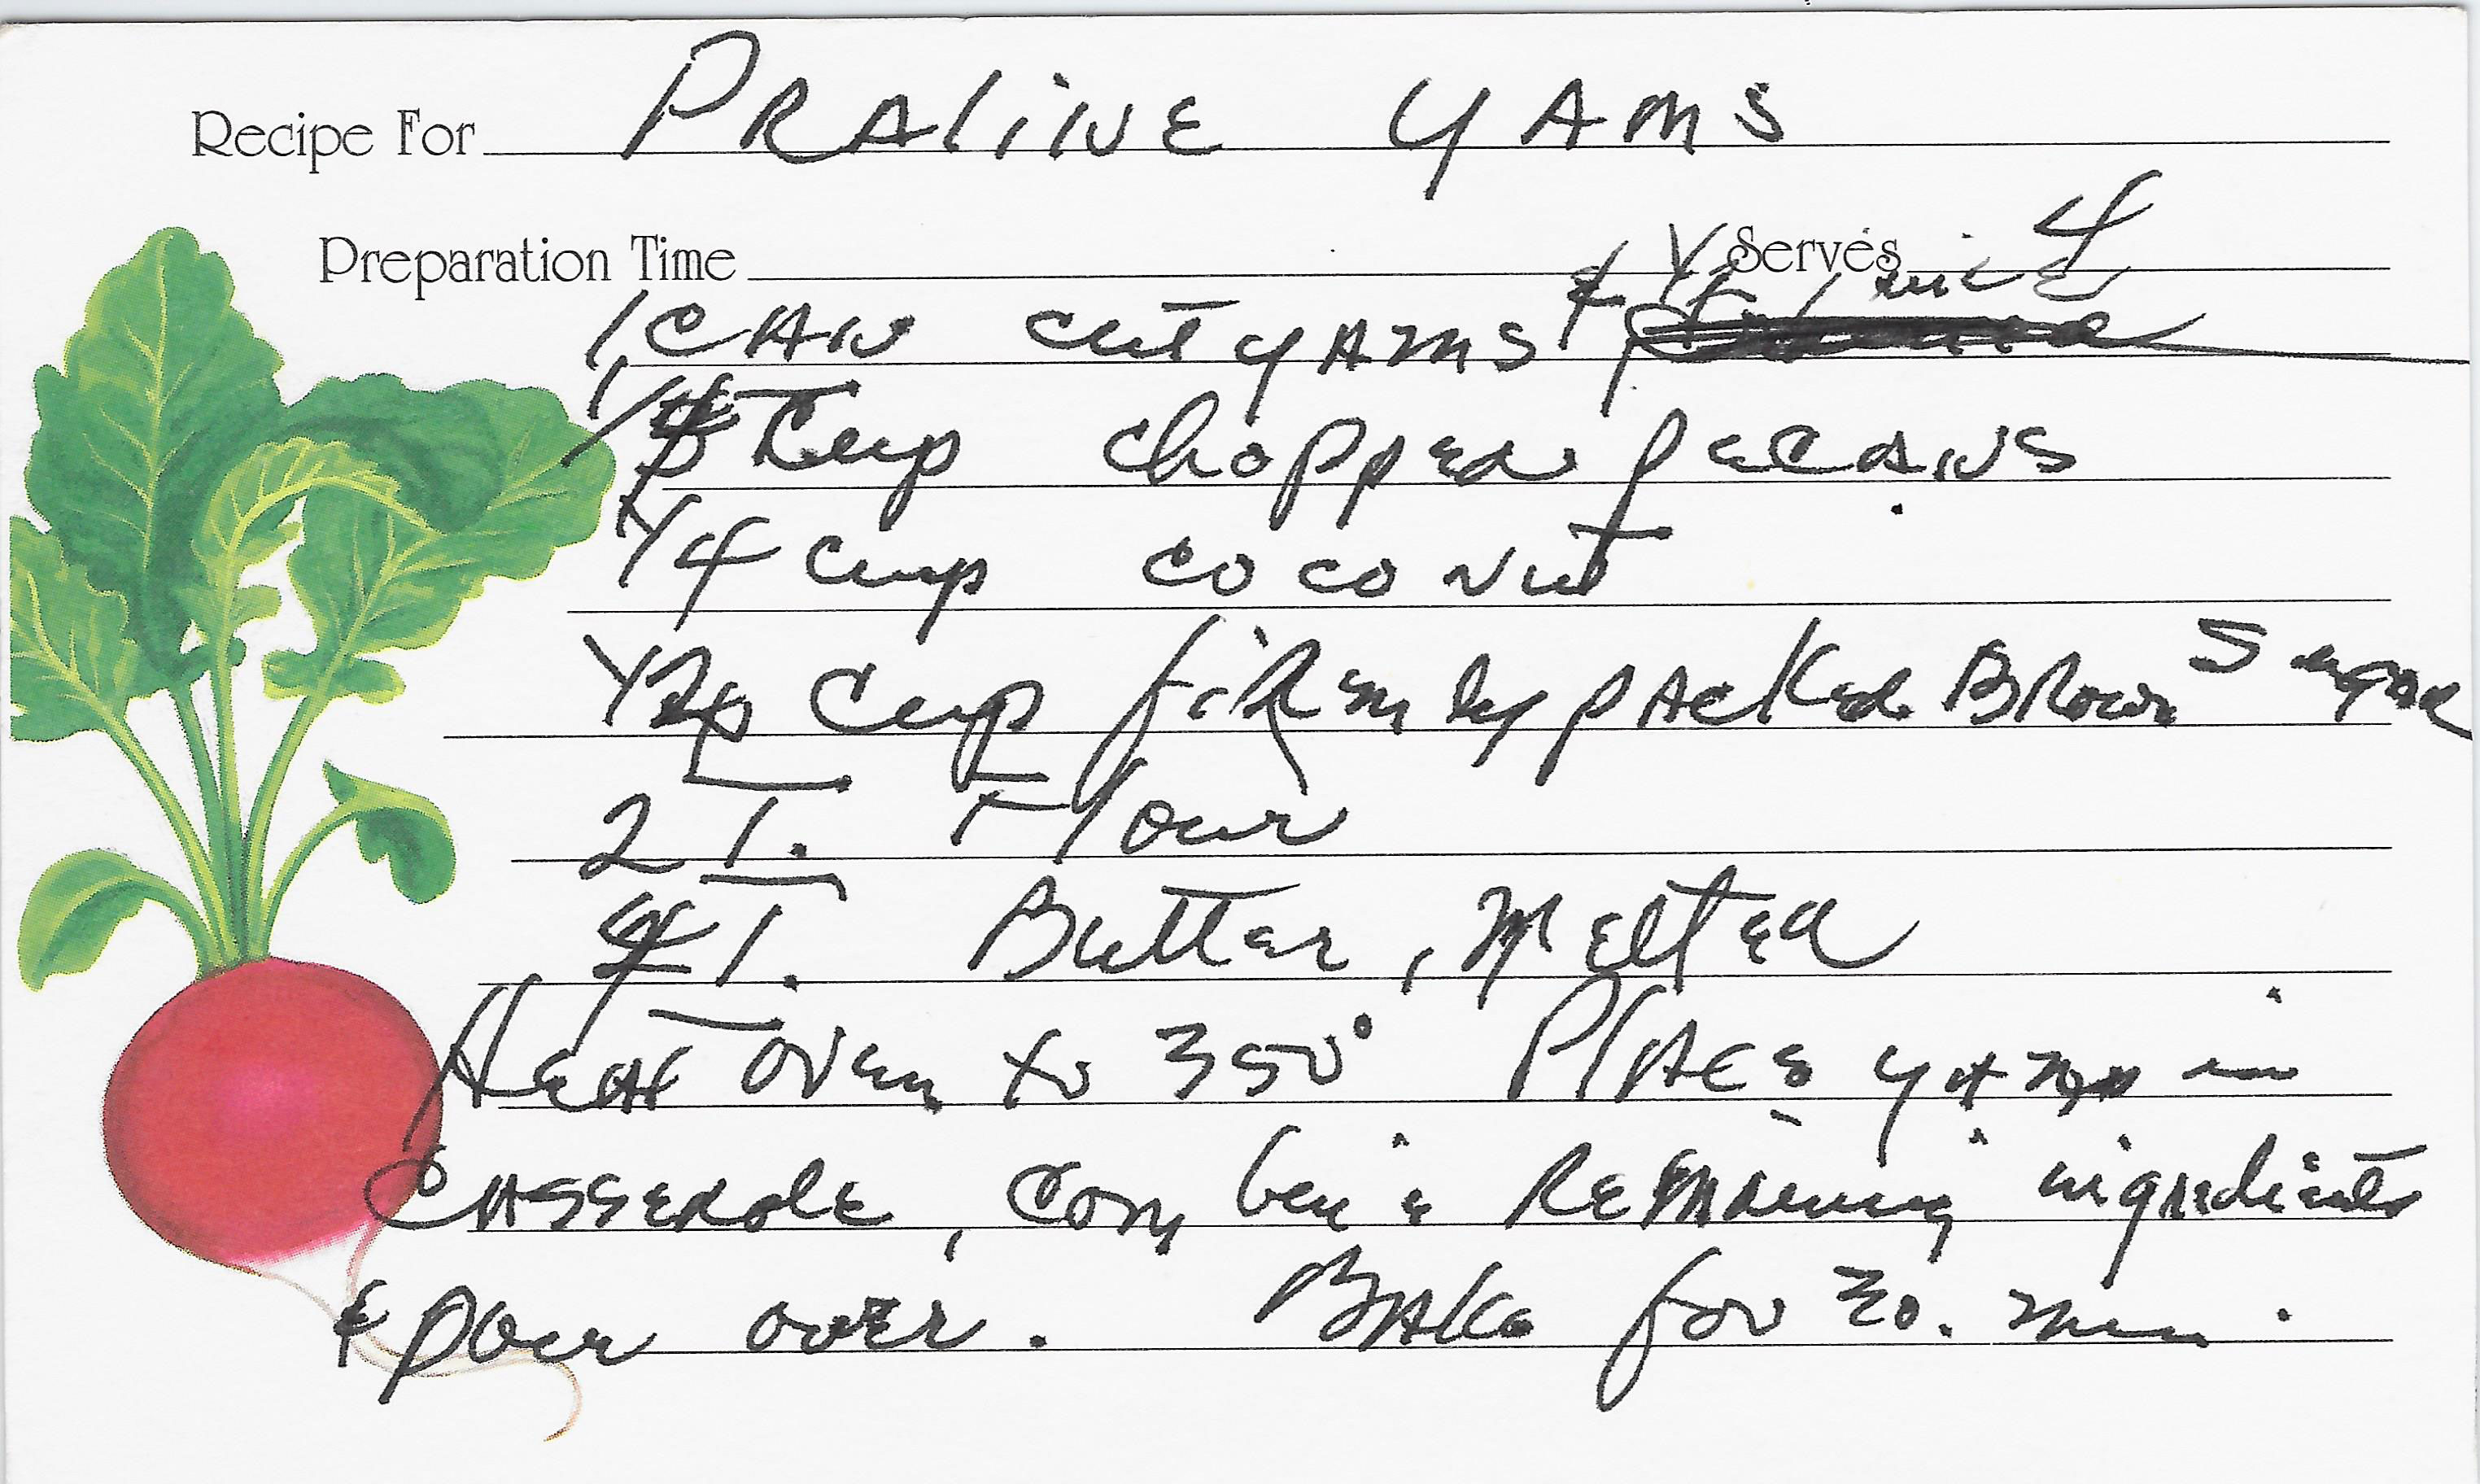 Recipe For PRALINE YAMS
Preparation Time Serves 4
1 CAN cut YAMS &
cup chopped pecans
1/4 cup coconut
cup firmly packed Brown Sugar
2 T. Flour
T. Butter, Melted
Heat oven to 350° PlAce yams in
CASSERole, Combine Remaining ingredients
& pour over. BAKe for 30. min.